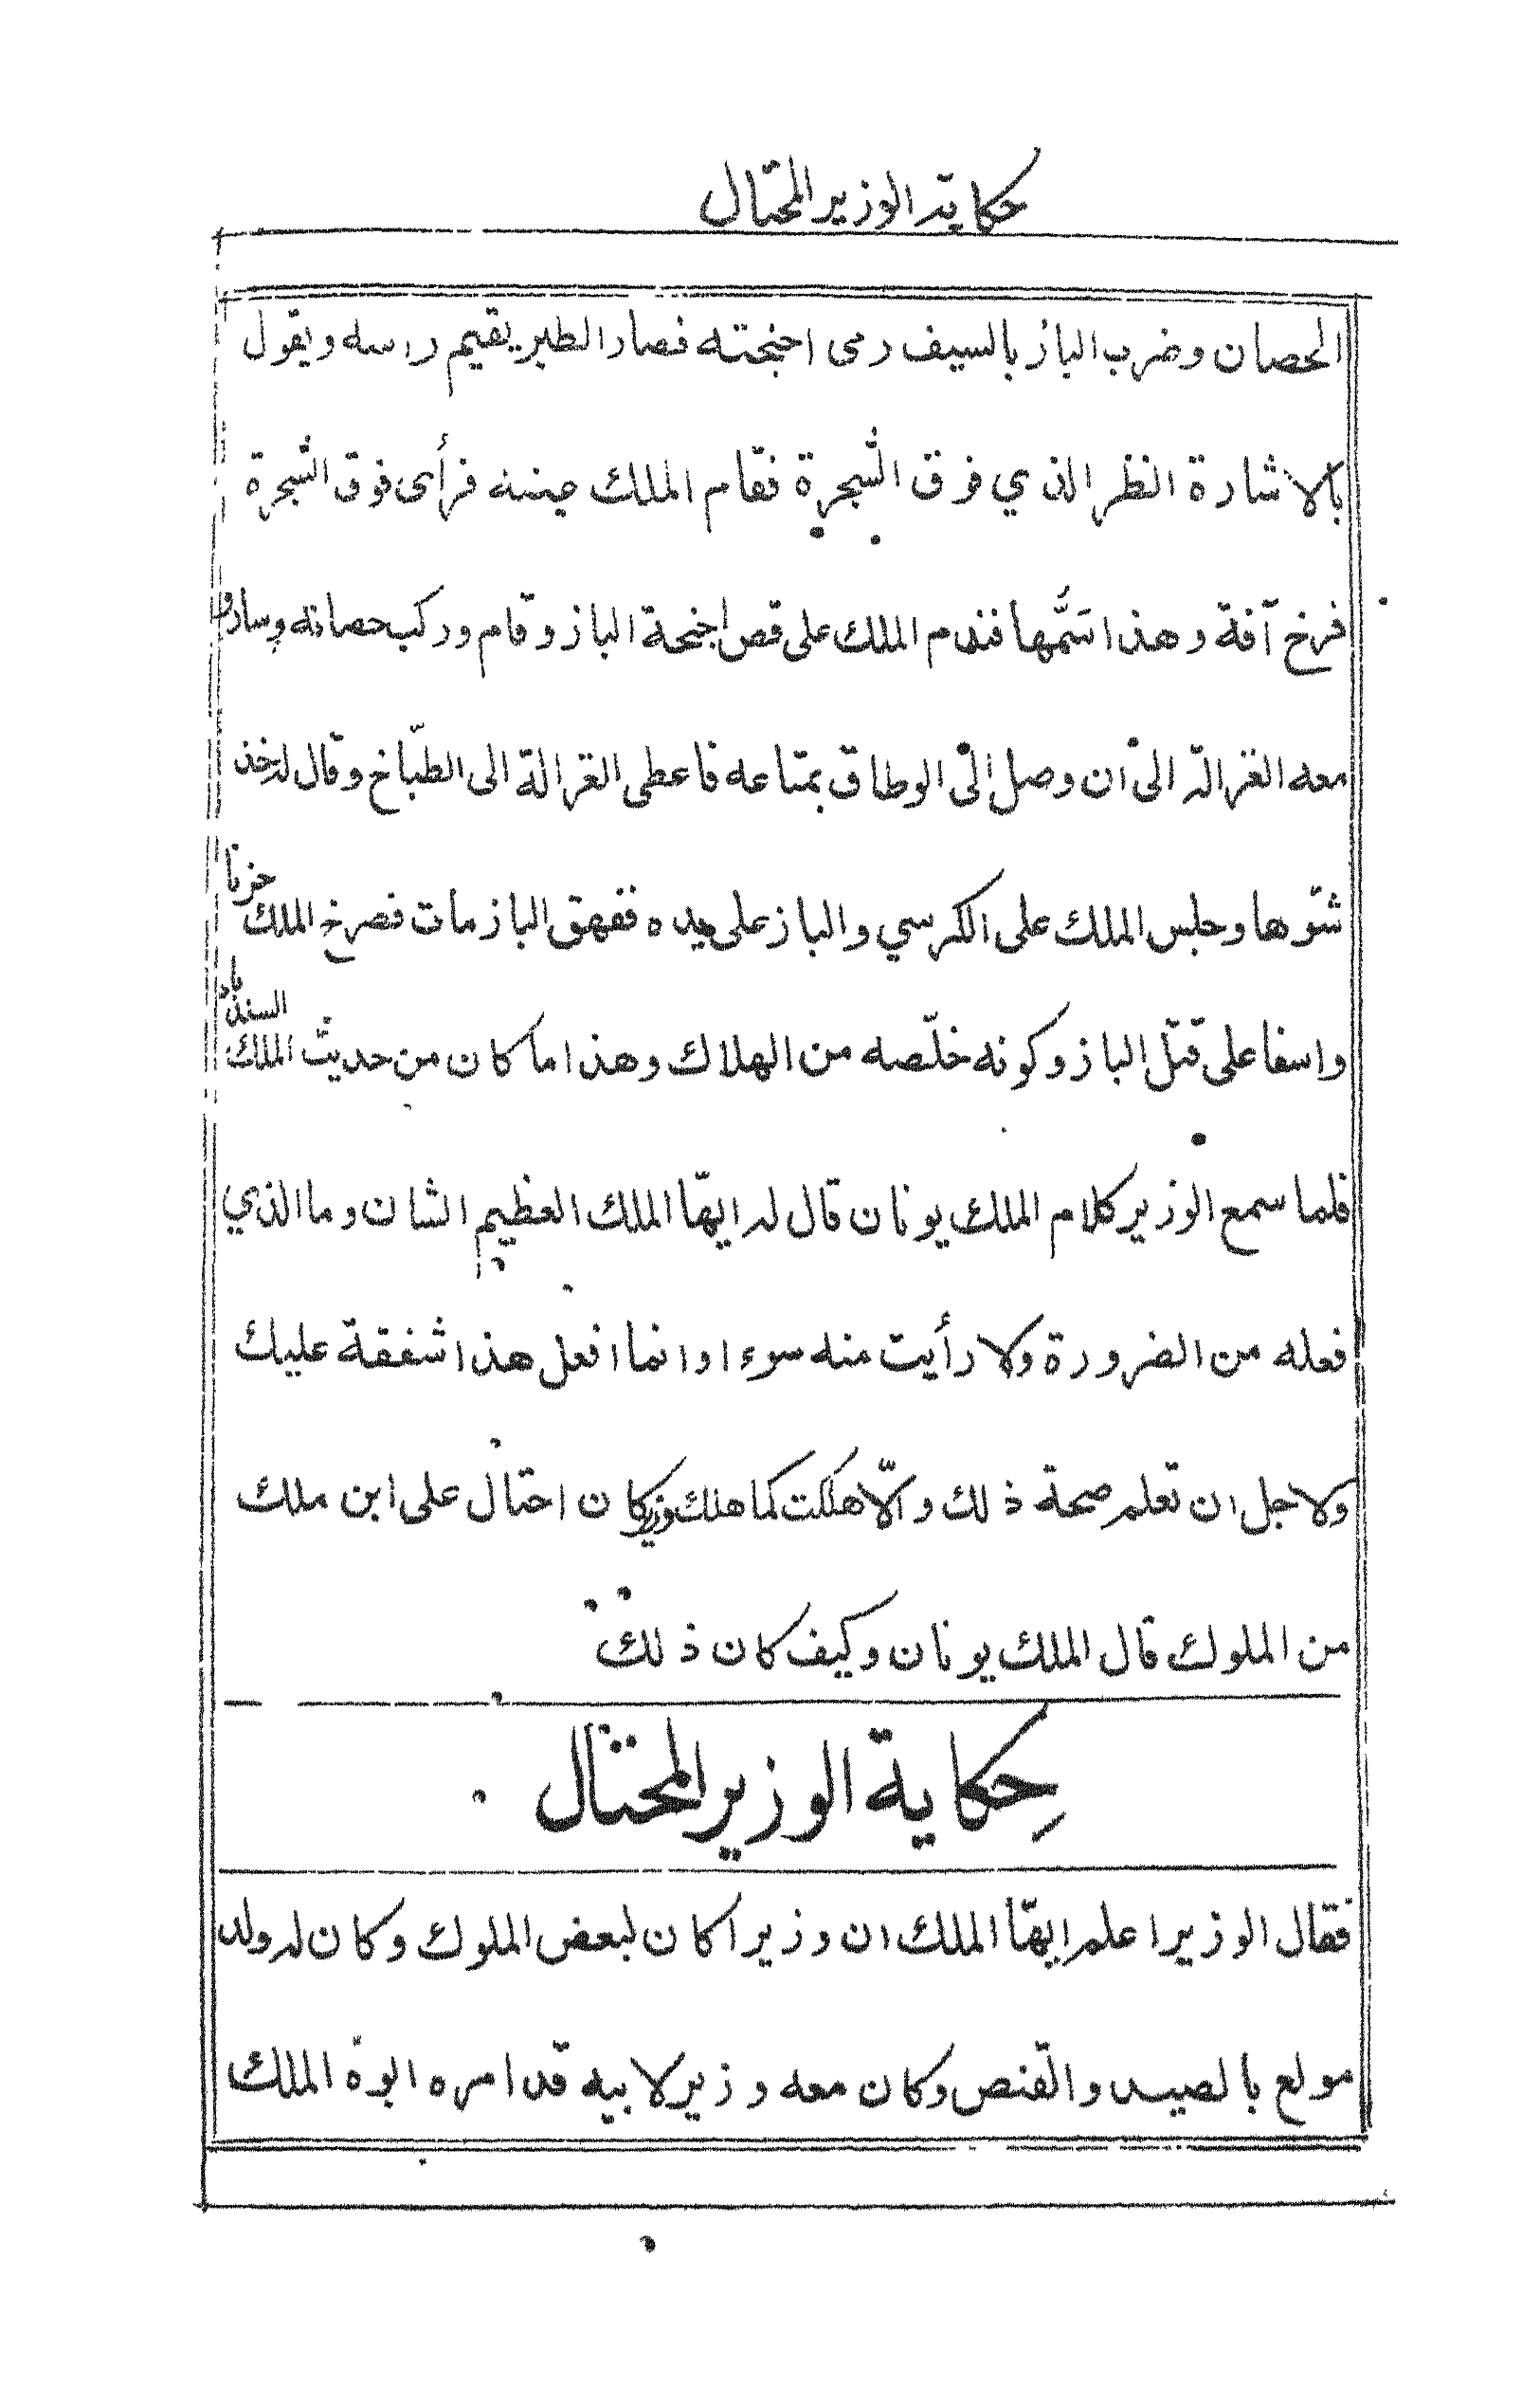 حكاية الوزير المحتال
الحصان وضرب الباز بالسيف رمى اجنحته فصار الطير يقيم راسه ويقول
بالاشارة انظر الذي فوق الشجرة فقام الملك عينه فرأى فوق الشجرة
فرخ آفة وهذا سَمُّها فندم الملك على قص اجنحة الباز وقام وركب حصانه وسار و
معه الغزالة الى ان وصل الى الوطاق بمتاعه فاعطى الغزالة الى الطبّاخ وقال له خذ
شوّها وجلس الملك على الكرسي والباز على يده ففهق الباز مات فصرخ الملك حزنا
واسفا على قتل الباز وكونه خلّصه من الهلاك وهذا ما كان من حديث الملك السندباد
فلما سمع الوزير كلام الملك يونان قال له ايهّا الملك العظيم الشان وما الذي
فعله من الضرورة ولا رأيت منه سوءا وانما افعل هذا شفقة عليك
ولاجل ان تعلم صحة ذلك والّا هلكت كما هلك وزير كان احتال على ابن ملك
من الملوك قال الملك يونان وكيف كان ذلك
حِكاية الوزير المحتال
فقال الوزير اعلم ايهّا الملك ان وزيرا كان لبعض الملوك وكان له ولد
مولع بالصيد والقنص وكان معه وزير لابيه قد امره ابوه الملك